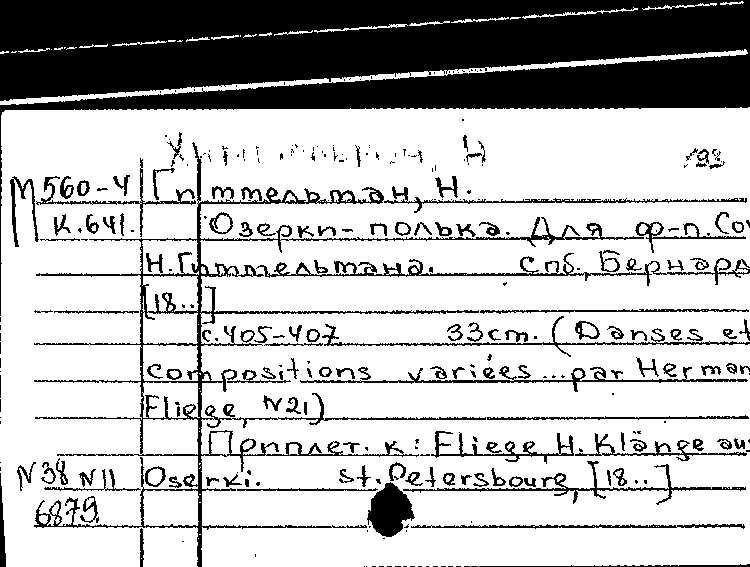 Н
193
М 560-4 Гиттельман, Н.
К.641. Озерки-полька. Для ф-п. Соч
Н.Гиттельмана. Спб., Бернард
[18..]
с.405-407 33cm. (Danses et
compositions variées...par Herman
Fliege, N21)
Припллет. к: Fliege, H. Klänge aus
N38 N11 Oserki. St.Petersbourg, [18..]
6879.